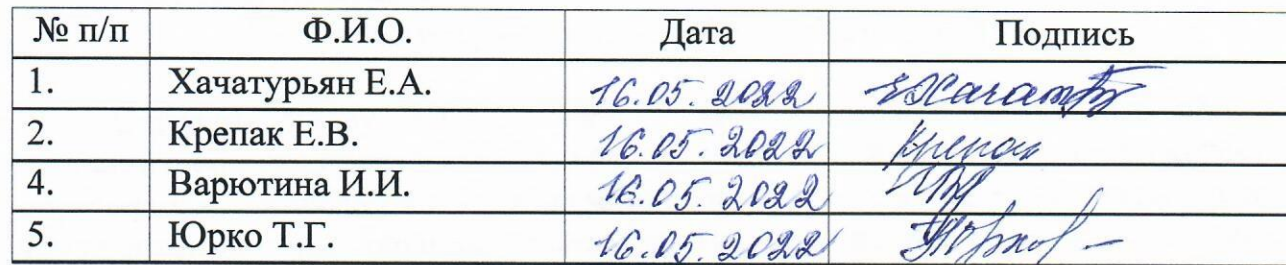 № п/п Ф.И.О. Дата Подпись
1. Хачатурьян Е.А. 16.05.2022
2. Крепак Е.В. 16.05.2022 Крепак
4. Варютина И.И. 16.05.2022
5. Юрко Т.Г. 16.05.2022